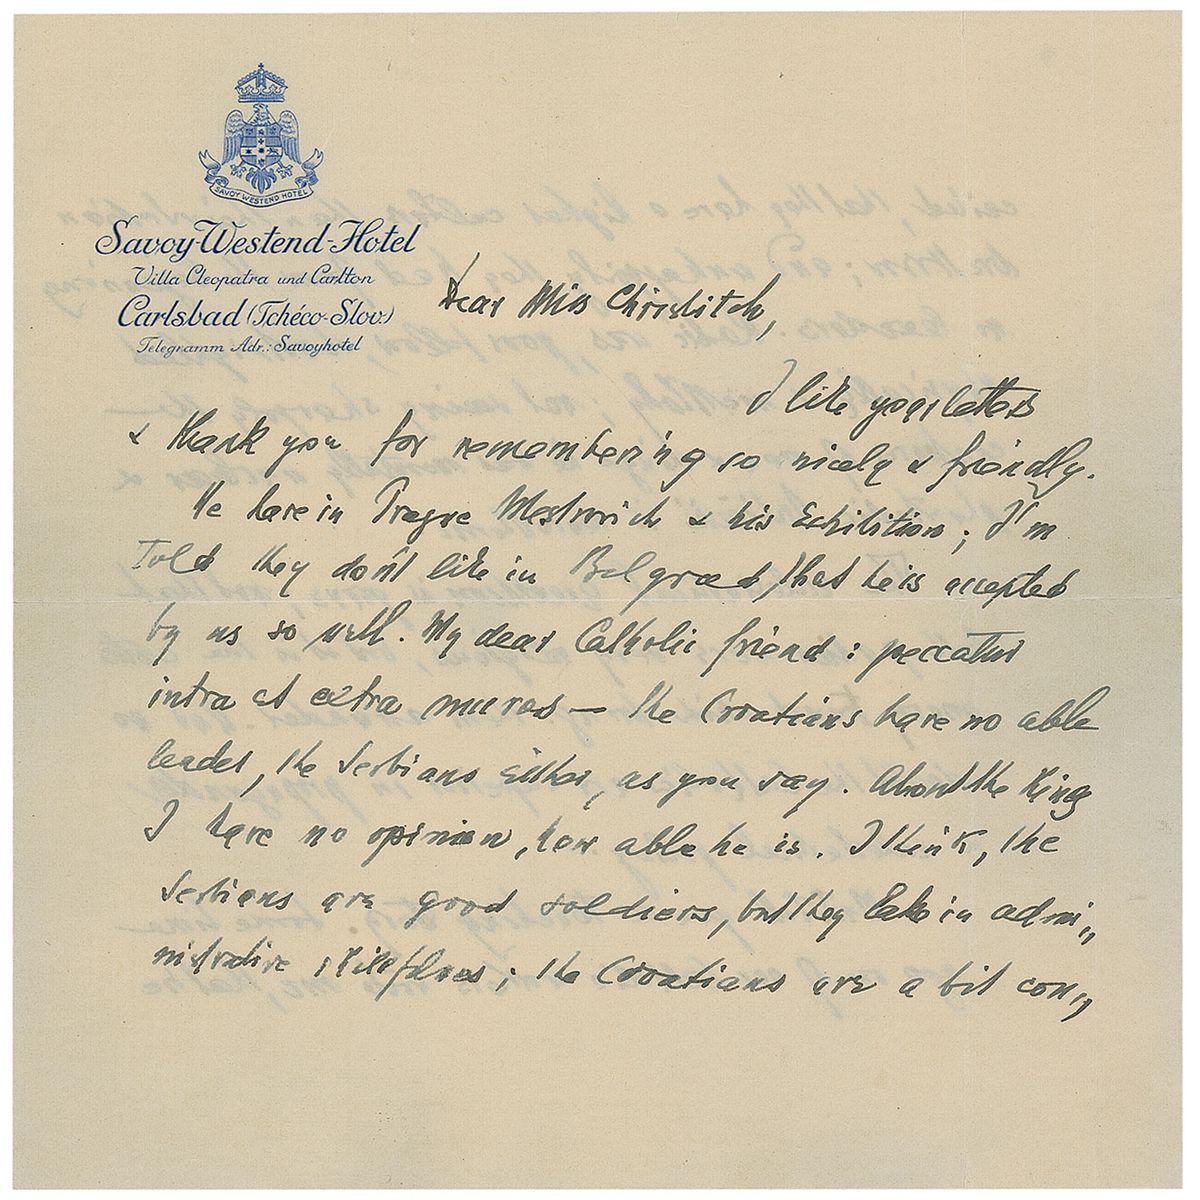 SAVOY WESTEND HOTEL
Savoy-Westend-Hotel
Villa Cleopatra und Carlton
Carlsbad (Tchéco-Slov.)
Telegramm Adr.: Savoyhotel
Dear Miss Christitch,
I like your letters
& thank you for remembering so nicely & friendly.
We have in Prague Mestrovich & his Exhibition; I'm
told they don't like in Belgrad, that he is accepted
by us so well. My dear Catholic friend: peccatur
intra et extra muros — the Croatians have no able
leader, the Serbians either, as you say. About the King
I have no opinion, how able he is. I think, the
Serbians are good soldiers, but they lake in admi„
nistrative skilfulness; the Croatians are a bit con„